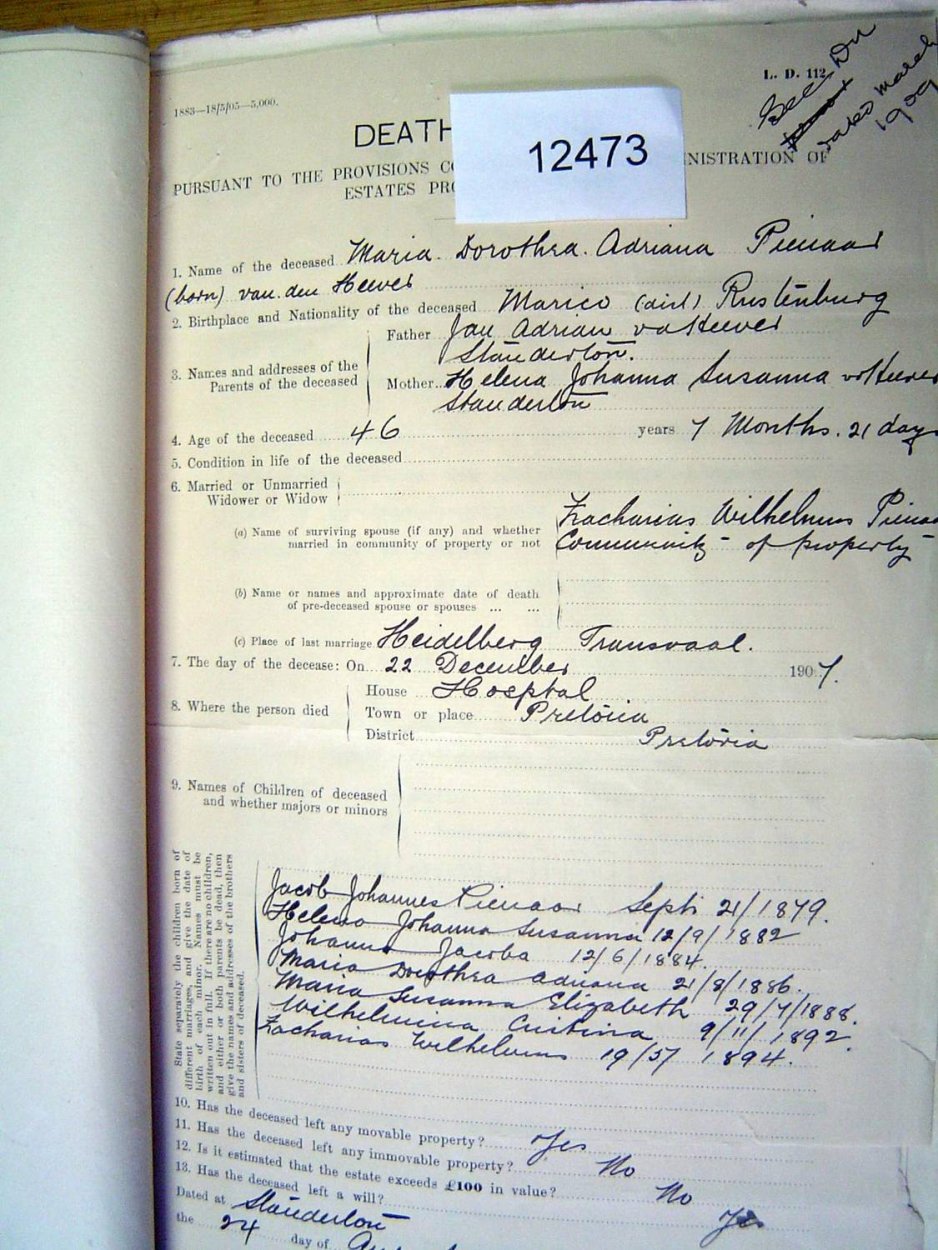 L. D. 112
1883—18/5/05—5,000.
See Dn
dated march
1909
DEATH
12473
PURSUANT TO THE PROVISIONS NISTRATION OF
ESTATES PRO
1. Name of the deceased Maria Dorothea Adriana Pienaar
(born) van den Heever
2. Birthplace and Nationality of the deceased Marico (dist) Rustenburg
3. Names and addresses of the Parents of the deceased
Father Jan Adrian vdHeever
Standerton.
Mother Helena Johanna Susanna vdHeever
Standerton
4. Age of the deceased 46 years 7 Months. 21 days
5. Condition in life of the deceased
6. Married or Unmarried
Widower or Widow
(a) Name of surviving spouse (if any) and whether
married in community of property or not
Zacharias Wilhelmus Pienaa
Community of property
(b) Name or names and approximate date of death
of pre-deceased spouse or spouses ... ...
(c) Place of last marriage Heidelberg Transvaal.
7. The day of the decease: On 22 December 1907.
8. Where the person died
House Hosptal
Town or place Pretoria
District Pretoria
9. Names of Children of deceased
and whether majors or minors
State separately the children born of
different marriages, and give the date of
birth of each minor. Names must be
written out in full. If there are no children,
and either or both parents be dead, then
give the names and addresses of the brothers
and sisters of deceased.
Jacob Johannes Pienaar Sept 21/1879.
Helena Johanna Susanna 12/9/1882
Johanna Jacoba 12/6/1884.
Maria Dorothea Adriana 21/8/1886.
Maria Susanna Elizabeth 29/7/1888.
Wilhelmina Cristina 9/11/1892.
Zacharias Wilhelmus 1894.
10. Has the deceased left any movable property? Yes
11. Has the deceased left any immovable property? No
12. Is it estimated that the estate exceeds £100 in value? No
13. Has the deceased left a will? Yes
Dated at Standerton
the 24 day of